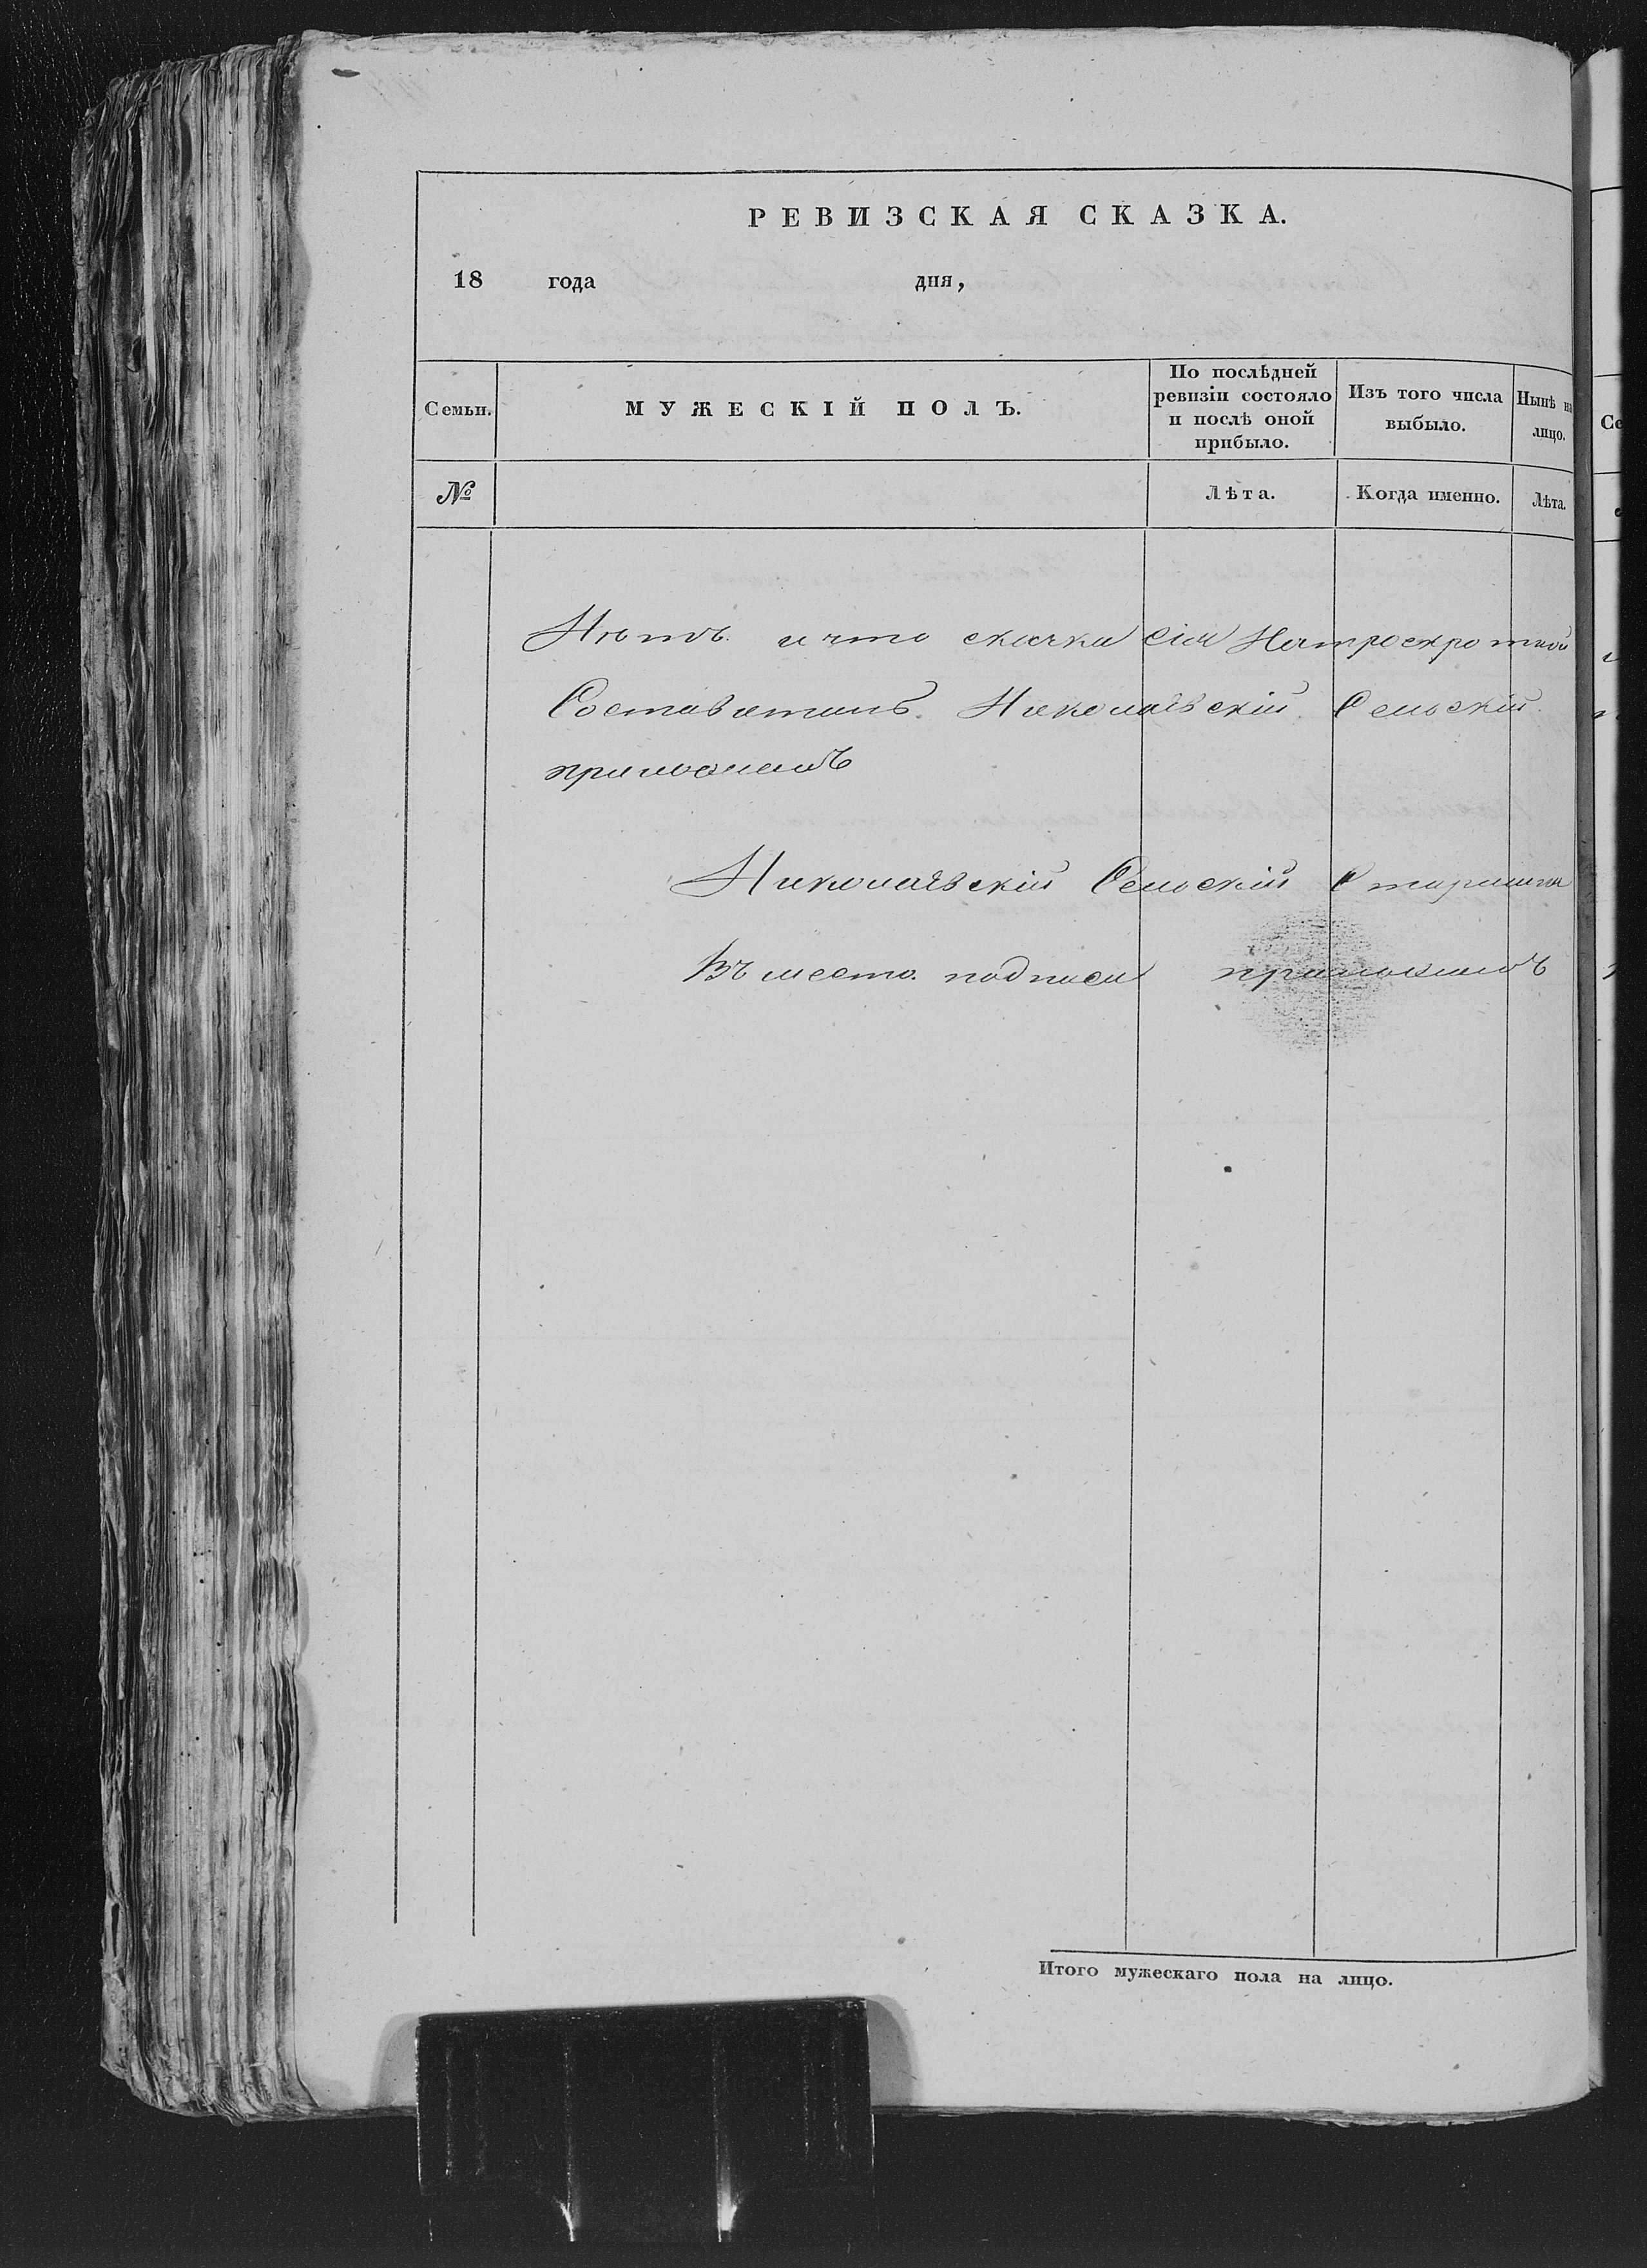 РЕВИЗСКАЯ СКАЗКА.
18 года дня,
Семьи.
МУЖЕСКІЙ ПОЛЪ.
По послѣдней ревизіи состояло и послѣ оной прибыло.
Изъ того числа выбыло.
Нынѣ на лицо.
№
Лѣта.
Когда именно.
Лѣта.
Нѣтъ и что скаска сія
Николаевскій Сельскій
Николаевскій Сельскій Старшина
Въместо подписи
Итого мужескаго пола на лицо.